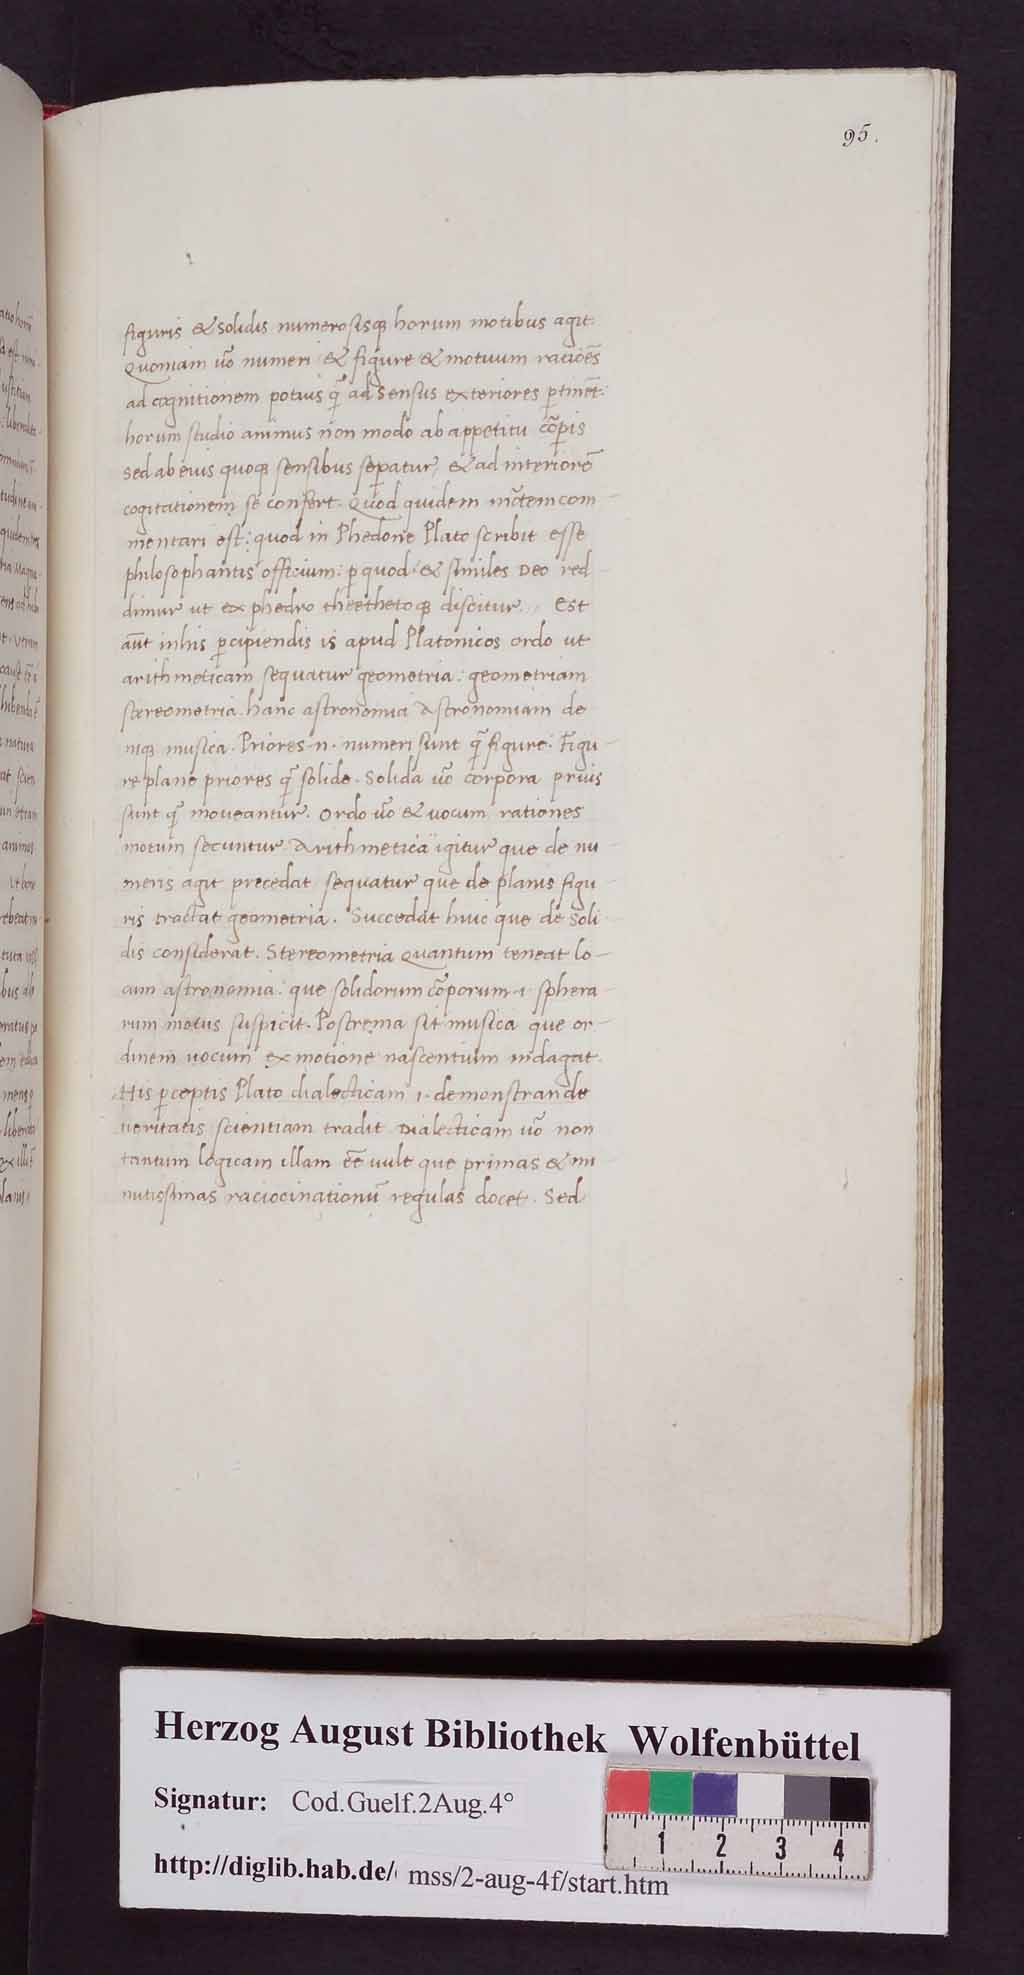 95.
figuris & solidis numerosisq; horum motibus agit.
Quoniam uo̅ numeri & figure & motuum racio̅es
ad cognitionem potius q̅ ad sensus exteriores p̱tine̅t:
horum studio animus non modo ab appetitu co̅ṟpis
sed ab eius quoq; sensibus sep̱atur, & ad interiore̅
cogitationem se confert. Quod quidem mo̅tem com-
mentari est: quod in Phedone Plato scribit esse
philosophantis officium: p̱ quod & similes Deo red-
dimur ut ex phedro theethetoq; discitur. Est
au̅t in his p̱cipiendis is apud Platonicos ordo ut
arithmeticam sequatur geometria: geometriam
stereometria. hanc astronomia Astronomiam de
niq; musica. Priores .n. numeri sunt q̅ figure. Figu-
re plane priores q̅ solide. Solida uo̅ corpora prius
sunt q̅ moueantur. Ordo uo̅ & uocum rationes
motum secuntur. Arithmetica igitur que de nu-
meris agit precedat sequatur que de planis figu-
ris tractat geometria. Succedat huic que de soli-
dis considerat. Stereometria Quantum teneat lo-
cum astronomia: que solidorum co̅porum .i. sphera-
rum motus suspicit. Postrema sit musica que or-
dinem uocum ex motione nascentium indagat.
His p̱ceptis Plato dialecticam .i. demonstrande
ueritatis scientiam tradit Dialecticam uo̅ non
tantum logicam illam e̅e̅ uult que primas & mi-
nutissimas raciocinationu̅ regulas docet. Sed
Herzog August Bibliothek Wolfenbüttel
Signatur: Cod.Guelf.2Aug.4°
http://diglib.hab.de/ mss/2-aug-4f/start.htm
1 2 3 4